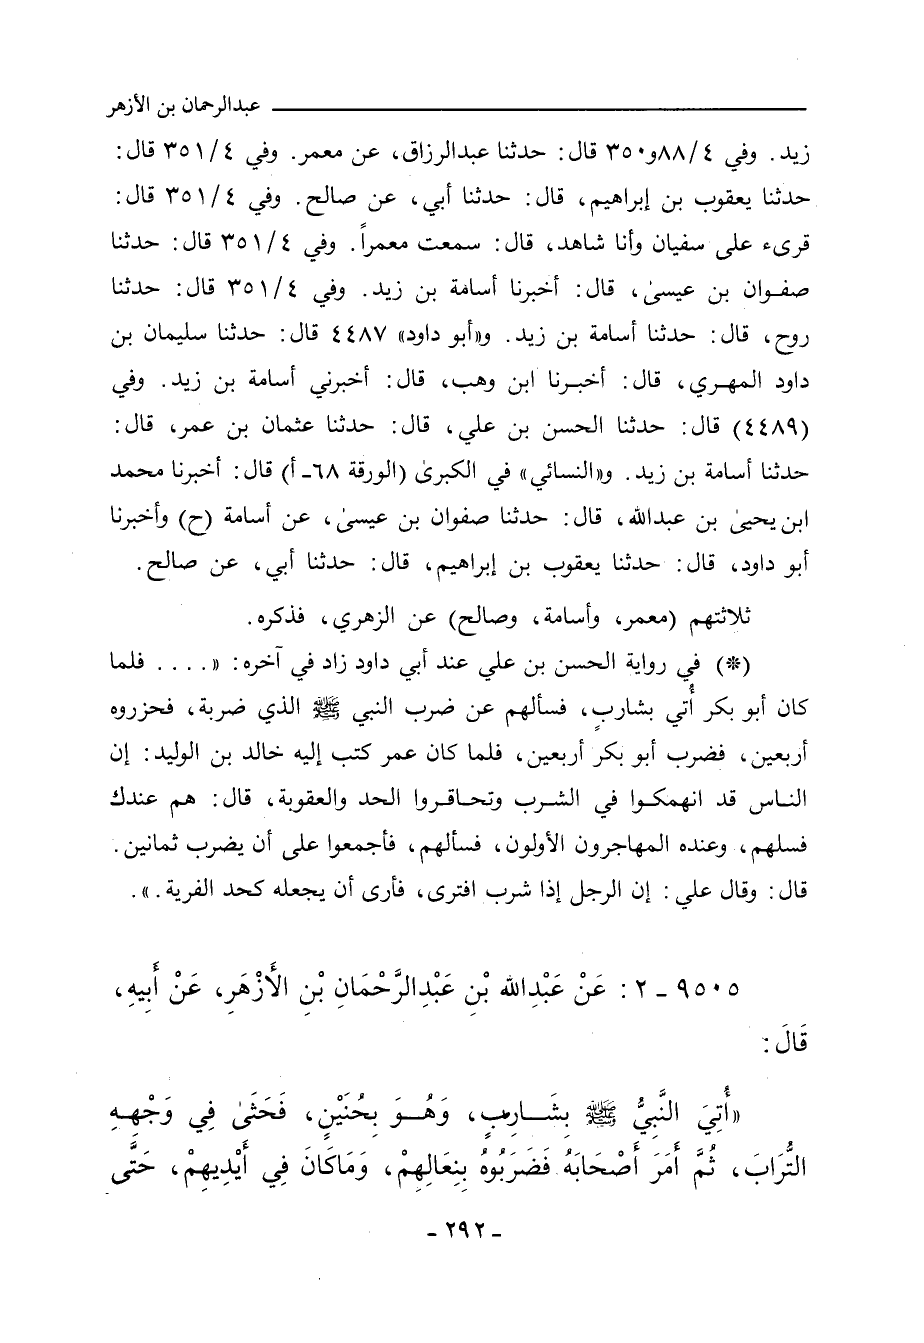 عبدالرحمان بن الأزهر
زيد. وفي ٤/٨٨و٣٥٠ قال: حدثنا عبدالرزاق، عن معمر. وفي ٤/٣٥١ قال:
حدثنا يعقوب بن إبراهيم، قال: حدثنا أبي، عن صالح. وفي ٤/٣٥١ قال:
قرىء على سفيان وأنا شاهد، قال: سمعت معمراً. وفي ٤/٣٥١ قال: حدثنا
صفوان بن عيسىٰ، قال: أخبرنا أسامة بن زيد. وفي ٤/٣٥١ قال: حدثنا
روح، قال: حدثنا أسامة بن زيد. و«أبو داود» ٤٤٨٧ قال: حدثنا سليمان بن
داود المهري، قال: أخبرنا ابن وهب، قال: أخبرني أسامة بن زيد. وفي
(٤٤٨٩) قال: حدثنا الحسن بن علي، قال: حدثنا عثمان بن عمر، قال:
حدثنا أسامة بن زيد. و«النسائي» في الكبرىٰ (الورقة ٦٨ـ أ) قال: أخبرنا محمد
ابن يحيىٰ بن عبدالله، قال: حدثنا صفوان بن عيسىٰ، عن أسامة (ح) وأخبرنا
أبو داود، قال: حدثنا يعقوب بن إبراهيم، قال: حدثنا أبي، عن صالح.
ثلاثتهم (معمر، وأسامة، وصالح) عن الزهري، فذكره.
(*) في رواية الحسن بن علي عند أبي داود زاد في آخره: «.... فلما
كان أبو بكر أُتي بشاربٍ، فسألهم عن ضرب النبي ﷺ الذي ضربة، فحزروه
أربعين، فضرب أبو بكر أربعين، فلما كان عمر كتب إليه خالد بن الوليد: إن
الناس قد انهمكوا في الشرب وتحاقروا الحد والعقوبة، قال: هم عندك
فسلهم، وعنده المهاجرون الأولون، فسألهم، فأجمعوا على أن يضرب ثمانين.
قال: وقال علي: إن الرجل إذا شرب افترى، فأرى أن يجعله كحد الفرية.».
٩٥٠٥ ـ ٢: عَنْ عَبْدِالله بْنِ عَبْدِالرَّحْمَانِ بْنِ الأَزْهَرِ، عَنْ أَبِيهِ،
قَالَ:
«أُتِيَ النَّبِيُّ ﷺ بِشَارِبٍ، وَهُوَ بِحُنَيْنٍ، فَحَثَىٰ فِي وَجْهِهِ
التُّرَابَ، ثُمَّ أَمَرَ أَصْحَابَهُ فَضَرَبُوهُ بِنِعَالِهِمْ، وَمَاكَانَ فِي أَيْدِيهِمْ، حَتَّى
ـ ٢٩٢ ـ